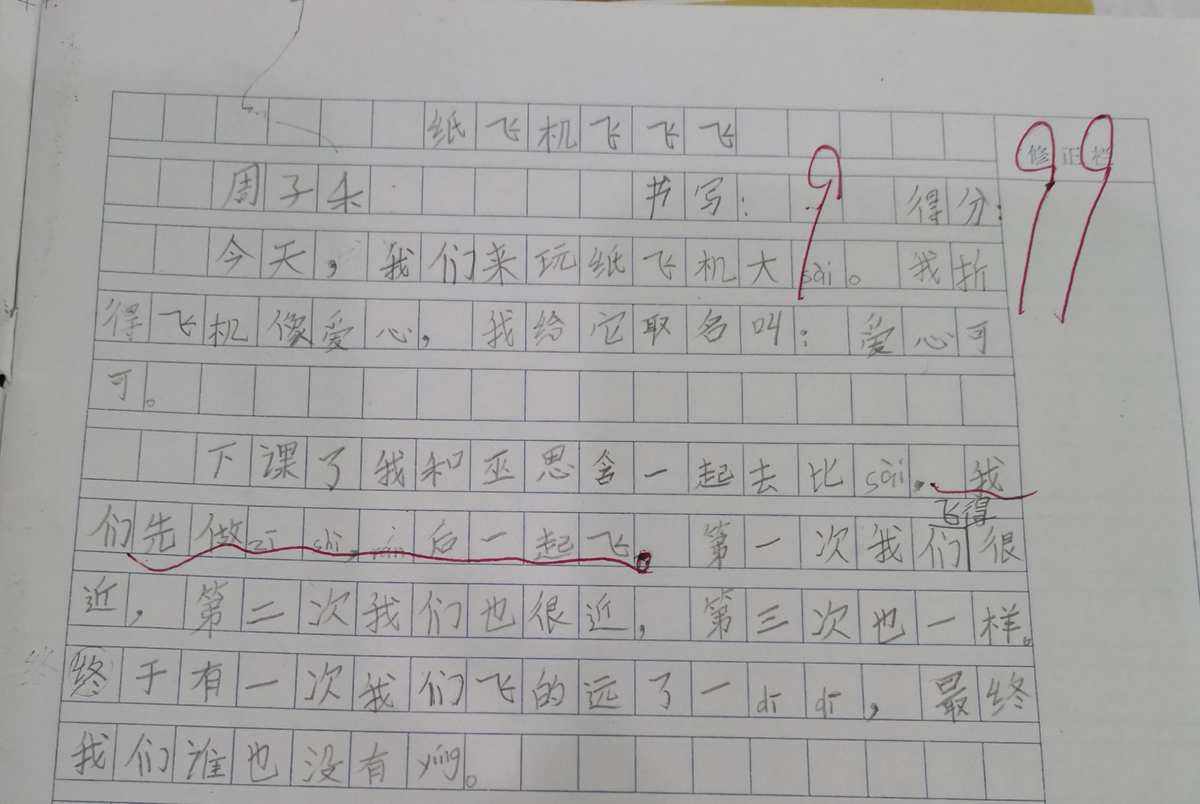 纸飞机飞飞飞
修正栏
99
周子 书写：9 得分：
今天，我们来玩纸飞机大sài。我折
得飞机像爱心，我给它取名叫：爱心可
可。
下课了我和巫思含一起去比sài，我
飞得
们先做zī shì，rán后一起飞。第一次我们很
近，第二次我们也很近，第三次也一样。
终于有一次我们飞的远了一dī dī，最终
我们谁也没有yíng。